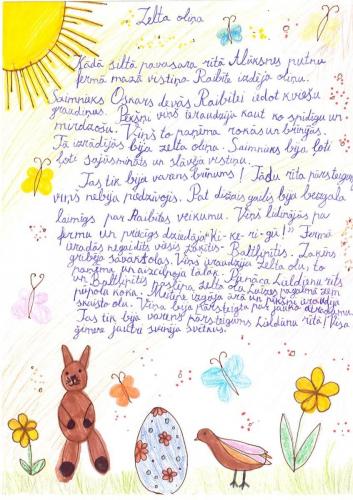 Zelta oliņa
Kādā siltā pavasara rītā Alūksnes putnu
fermā mazā vistiņa Raibīte izdēja oliņu.
Saimnieks Oskars devās Raibītei iedot kviešu
graudiņus. Pēkšņi viņš ieraudzīja kaut ko spīdīgu un
mirdzošu. Viņš to paņēma rokās un brīnījās.
Tā izrādījās bija zelta oliņa. Saimnieks bija ļoti
ļoti sajūsmināts un slavēja vistiņu.
Tas tik bija varens brīnums! Tādu rītu pārsteigumu
viņš nebija piedzīvojis. Pat dižais gailis bija bezgala
laimīgs par Raibītes veikumu. Viņš lidinājās pa
fermu un priecīgs dziedāja "Ki-ke-ri-gū!" Fermā
ieradās negaidīts viesis Zaķītis-Baltļipītis. Zaķins
gribēja savākt olas. Viņš ieraudzīja zelta olu, to
paņēma un aizcilpoja tālāk. Pienāca Lieldienu rīts
un Baltļipītis paslēpa zelta olu Laizes pagalmā zem
pūpola koka. Meitene izgāja ārā un pēkšņi ieraudzīja
skaisto olu. Viņa bija pārsteigta par jauko atradumu.
Tas tik bija varens pārsteigums Lieldienu rītā! Visa
ģimene jautri svinēja svētkus.